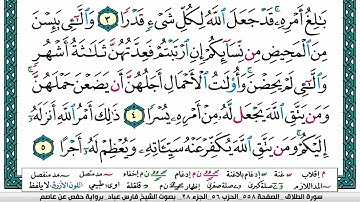 بَٰلِغُ أَمْرِهِۦ ۚ قَدْ جَعَلَ ٱللَّهُ لِكُلِّ شَىْءٍ قَدْرًا ٣ وَٱلَّٰٓـِٔى يَئِسْنَ
مِنَ ٱلْمَحِيضِ مِن نِّسَآئِكُمْ إِنِ ٱرْتَبْتُمْ فَعِدَّتُهُنَّ ثَلَٰثَةُ أَشْهُرٍ
وَٱلَّٰٓـِٔى لَمْ يَحِضْنَ ۚ وَأُو۟لَٰتُ ٱلْأَحْمَالِ أَجَلُهُنَّ أَن يَضَعْنَ حَمْلَهُنَّ ۚ
وَمَن يَتَّقِ ٱللَّهَ يَجْعَل لَّهُۥ مِنْ أَمْرِهِۦ يُسْرًا ٤ ذَٰلِكَ أَمْرُ ٱللَّهِ أَنزَلَهُۥٓ
إِلَيْكُمْ ۚ وَمَن يَتَّقِ ٱللَّهَ يُكَفِّرْ عَنْهُ سَيِّـَٔاتِهِۦ وَيُعْظِمْ لَهُۥٓ أَجْرًا ٥
سورة الطلاق الصفحة ٥٥٨ الحزب ٥٦ الجزء ٢٨ بصوت الشيخ فارس عباد برواية حفص عن عاصم